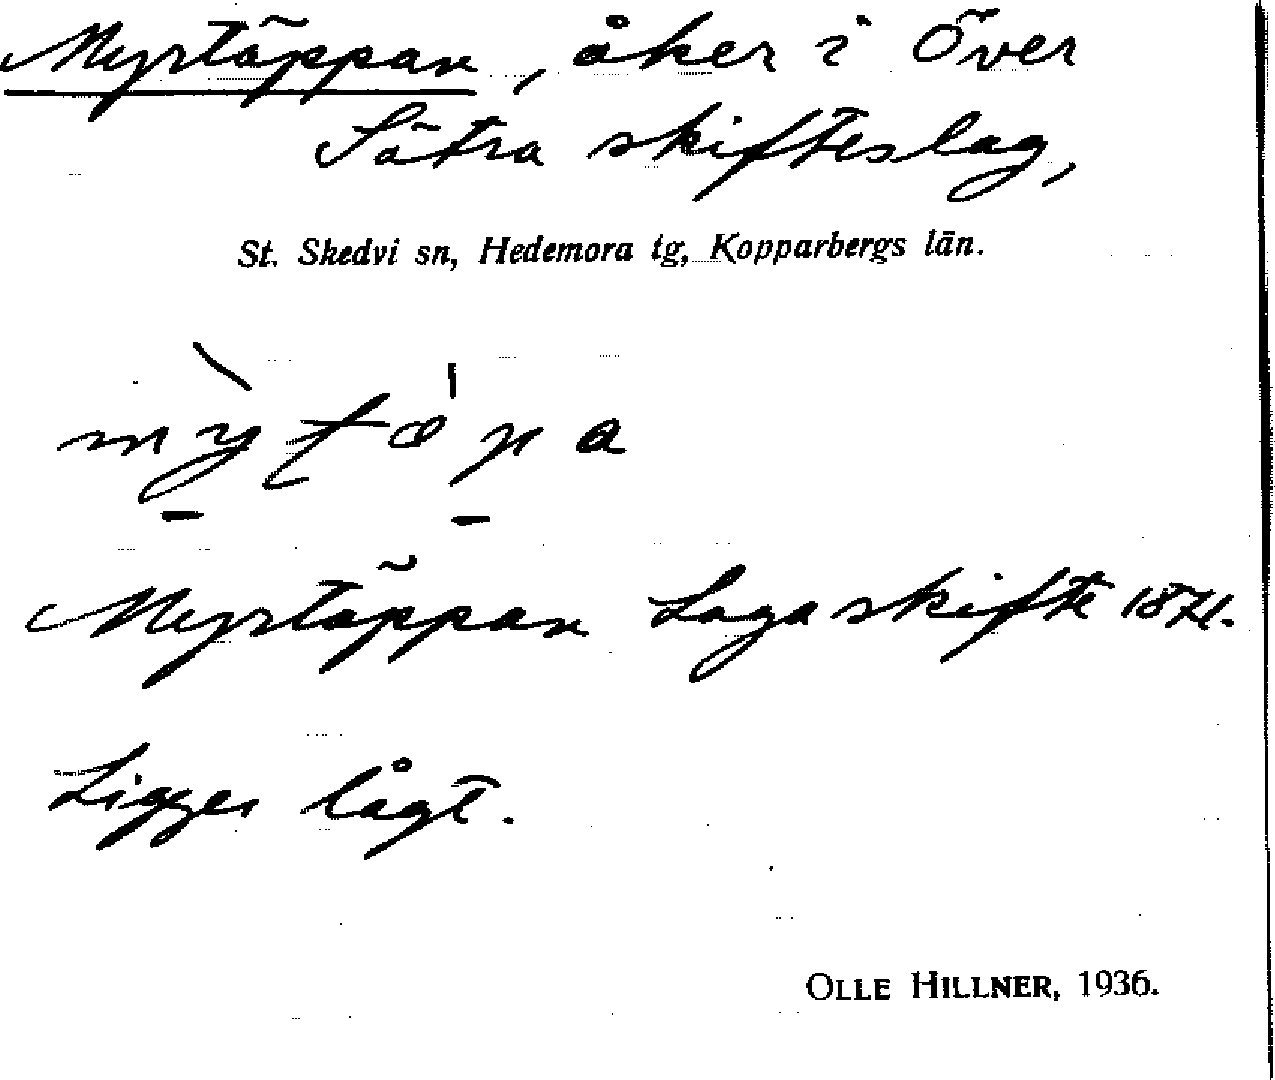 Myrtäppan, åker i Över
Sätra skifteslag,
St. Skedvi sn, Hedemora tg, Kopparbergs län.
Myrtäppan Laga skifte 1871.
Ligger lågt.
OLLE HILLNER, 1936.